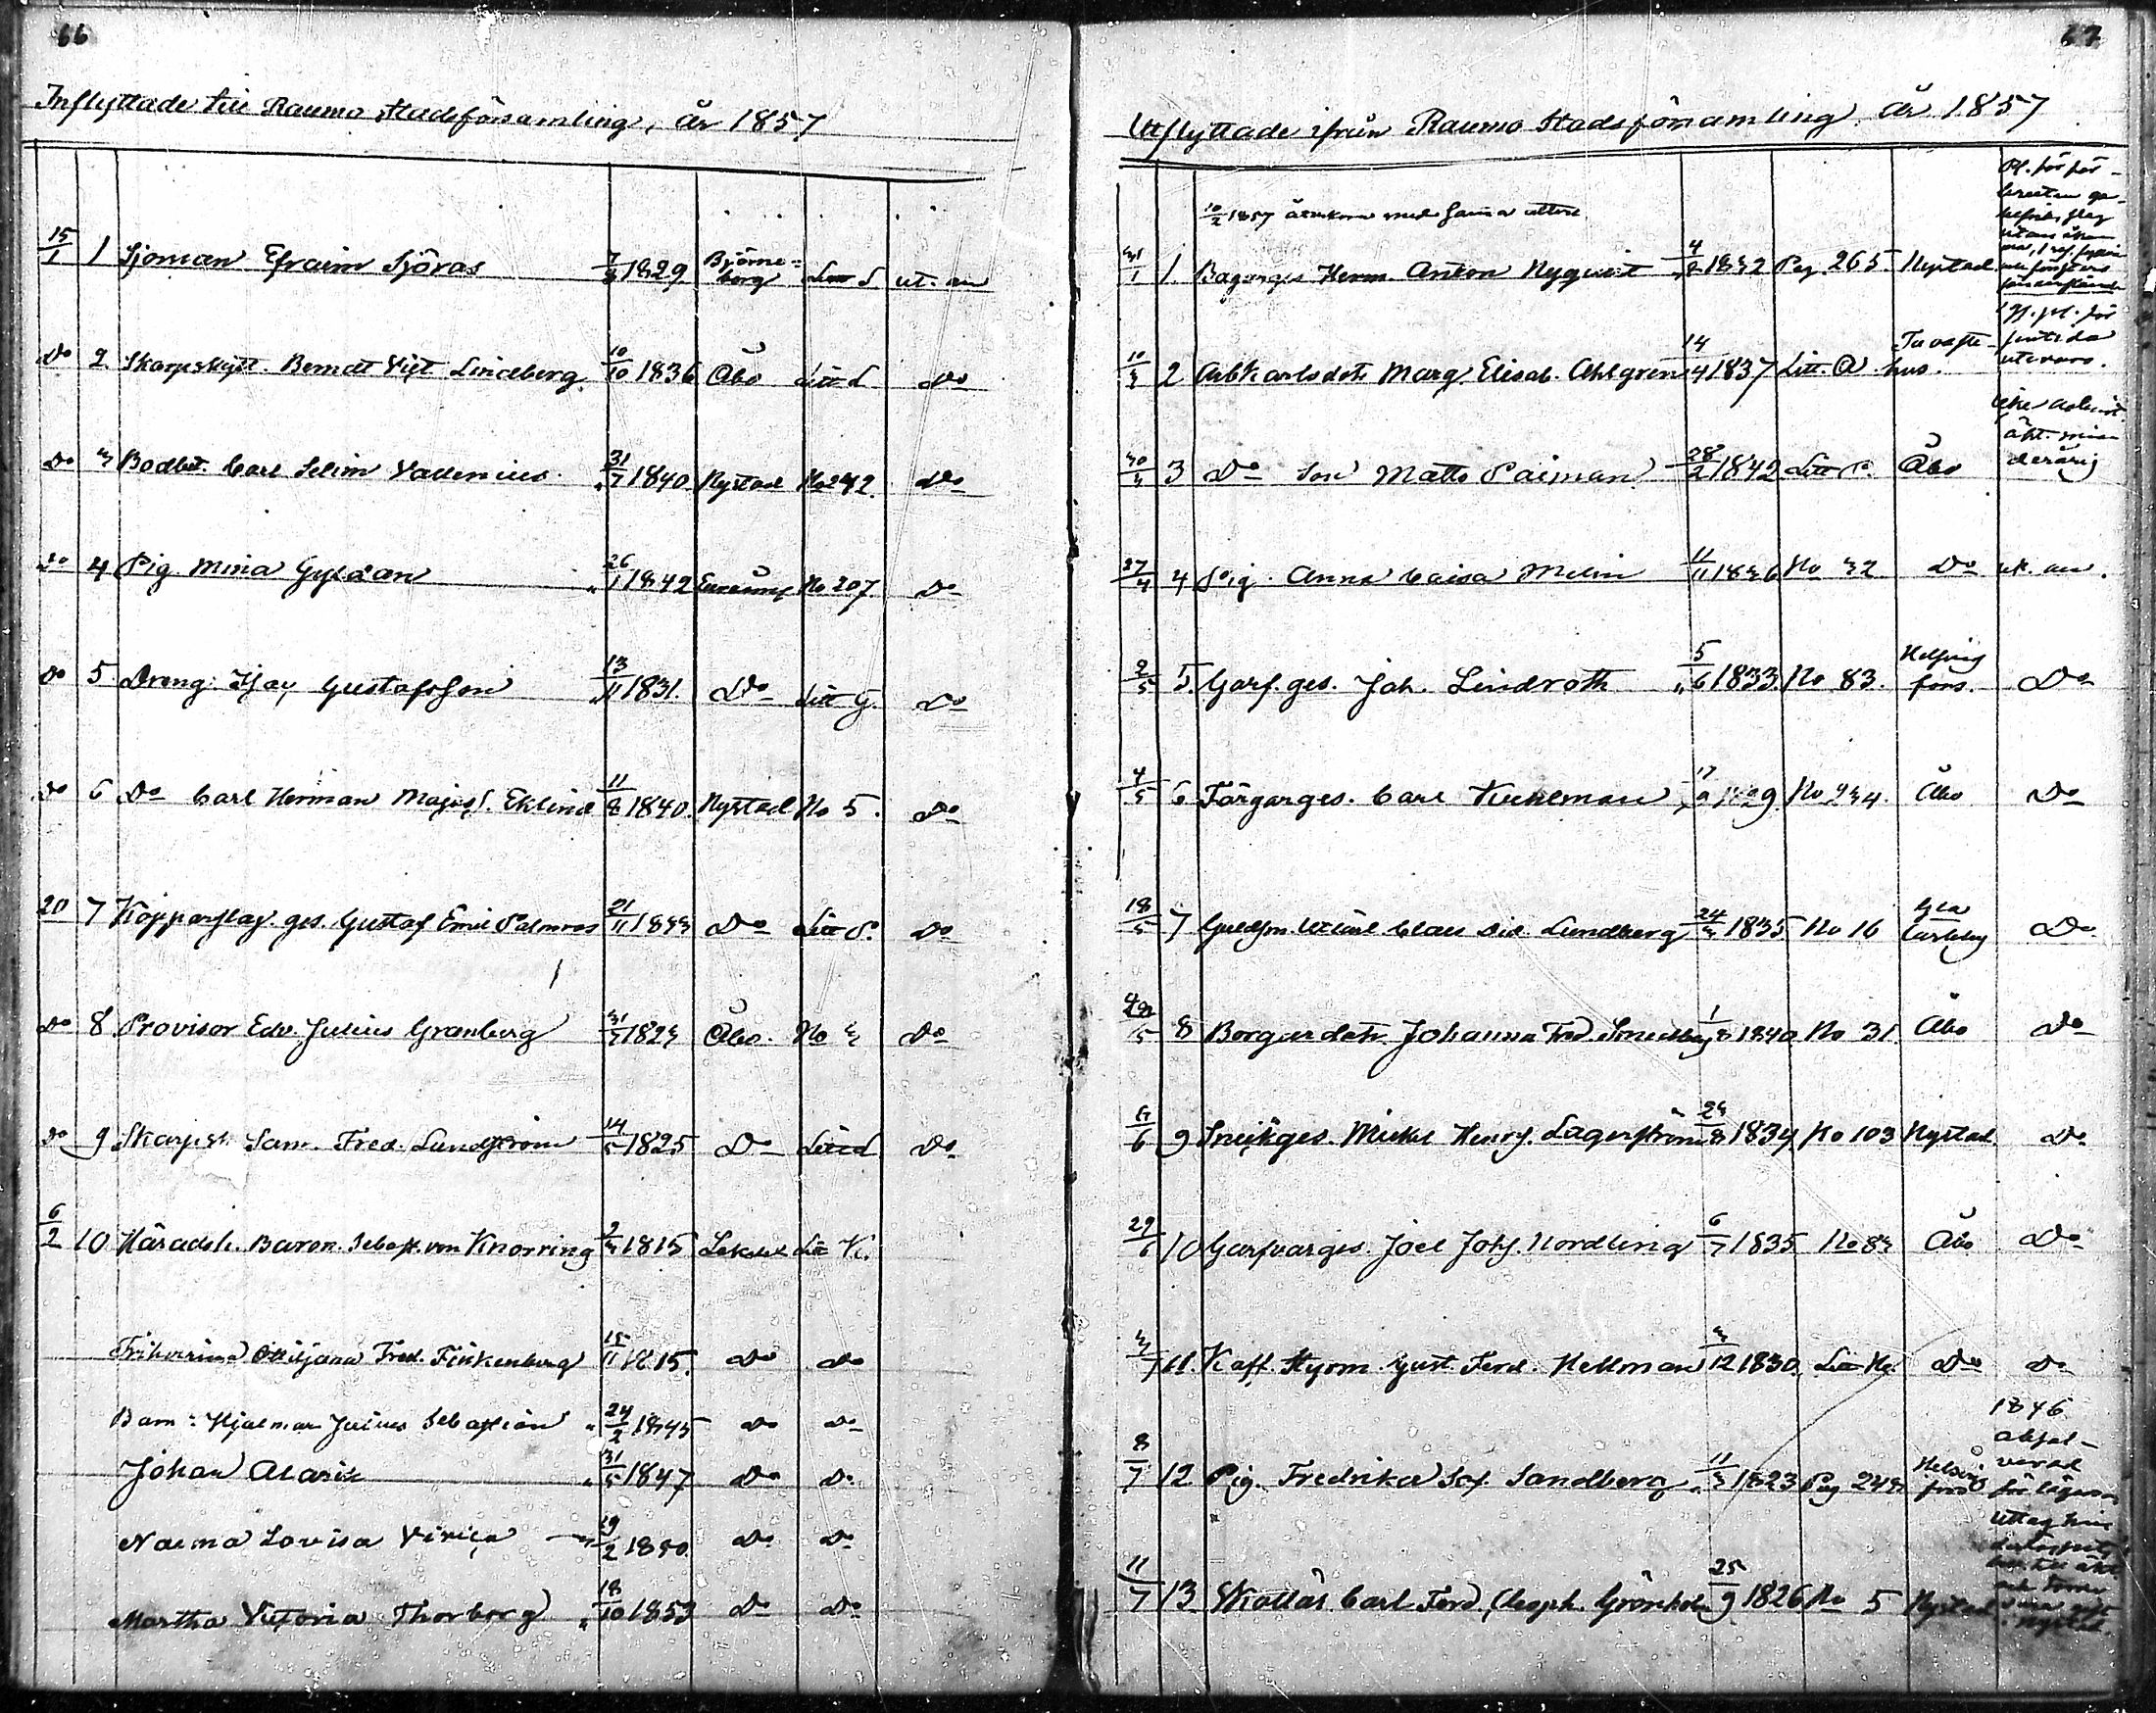 66
Inflyttade till Raumo Stadsförsamling, år 1857
15/1 1 Sjöman Efraim Sjöros 7/3 1829 Björneborg Litt S ut. an
Do 2. Skarpskytt. Berndt Vict Lindeberg 10/10 1836 Åbo Litt L Do
Do 3 Bodbet. Carl Selim Vallenius 31/7 1840 Nystad No 242. Do
Do 4 Pig Mina Gyldan 26/1 1842 No 207 Do
Do 5. Dreng Isaj Gustafsson 13/11 1831. Do Litt G. Do
Do 6 Do Carl Herman Majas. Eklind 11/8 1840. Nystad No 5. Do
20 7 Kopparslag. ges. Gustaf Emil Palmros 21/11 1833 Do Litt P. Do
Do 8. Provisor Edv. Julius Granberg 31/5 1823 Åbo. No 3 Do
Do 9 Skarpsk. Sam. Fred. Lundström 14/5 1825 Do Litt L Do
6/2 10 Häradsh. Baron. Sebast. von Knorring 2/3 1815 Litt K.
Friherrinna Ottiljana Fred. Finkenberg 15/11 1815. Do Do
Barn: Hjalmar Julius Sebastian 24/2 1845 Do Do
Johan Alarik 31/5 1847 Do Do
Naema Lovisa 19/2 1850. Do Do
Martha Victoria Thorborg 18/10 1853 Do Do
67
Utflyttade ifrån Raumo Stadsförsamling år 1857
10/2 1857 återkom med samma attest
31/1 1. Bagarges Herm. Anton Nyqvist 4/8 1832 Pag. 265. Nystad
10/3 2 Arbkarlsdotr Marg. Elisab. Ahlgren 14/4 1837 Litt. A Tavastehus.
30/3 3 Do Son Matts Paiman 28/2 1842 Litt P. Åbo
27/4 4 Pig. Anna Caisa Melin 11/11 1836 No 32 Do ut. an.
2/5 5 Garf. ges. Joh. Lindroth 5/6 1833. No 83. Helsingfors. Do
4/5 6 Färgarges. Carl Kuhlman 17/9 1829. No 234. Åbo Do
18/5 7 Guldsm. Claes Did. Lundberg 24/3 1835 No 16 Gla Carleby Do
5 8 Borgardotr. Johanna Fred. Smedberg 1/8 1840 No 31. Åbo Do
6 9 Snickges. Mickel Henr. Lagerström 23/8 1834 No 103 Nystad. Do
29/6 10 Garfvarges. Joel Joh. Nordling 6/7 1835 No 83 Åbo Do
3/7 11. Kaff. Styrm. Gust. Ferd. Hellman 3/12 1830. Litt H. Do Do
8/7 12 Pig. Fredrika Sof. Sandberg 11/3 1823 Pag 243 Helsingfors 1846
11/7 13 Skollär. Carl Ferd. Cleoph. Grönholm 25/9 1826 No 5 Nystad